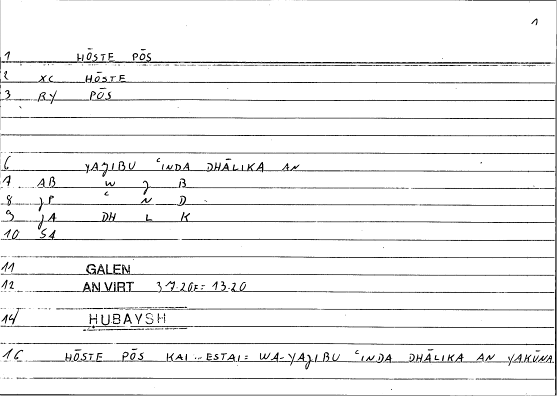 1
1 HŌSTE PŌS
2 XC HŌSTE
3 RY PŌS
6 YAJIBU ʿINDA DHĀLIKA AN
7 AB W J B
8 JP ʿ N D
9 JA DH L K
10 SA
11 GALEN
12 AN VIRT 3 7.20F = 13.20
14 ḤUBAYSH
16 HŌSTE PŌS KAI .. ESTAI = WA-YAJIBU ʿINDA DHĀLIKA AN YAKŪNA